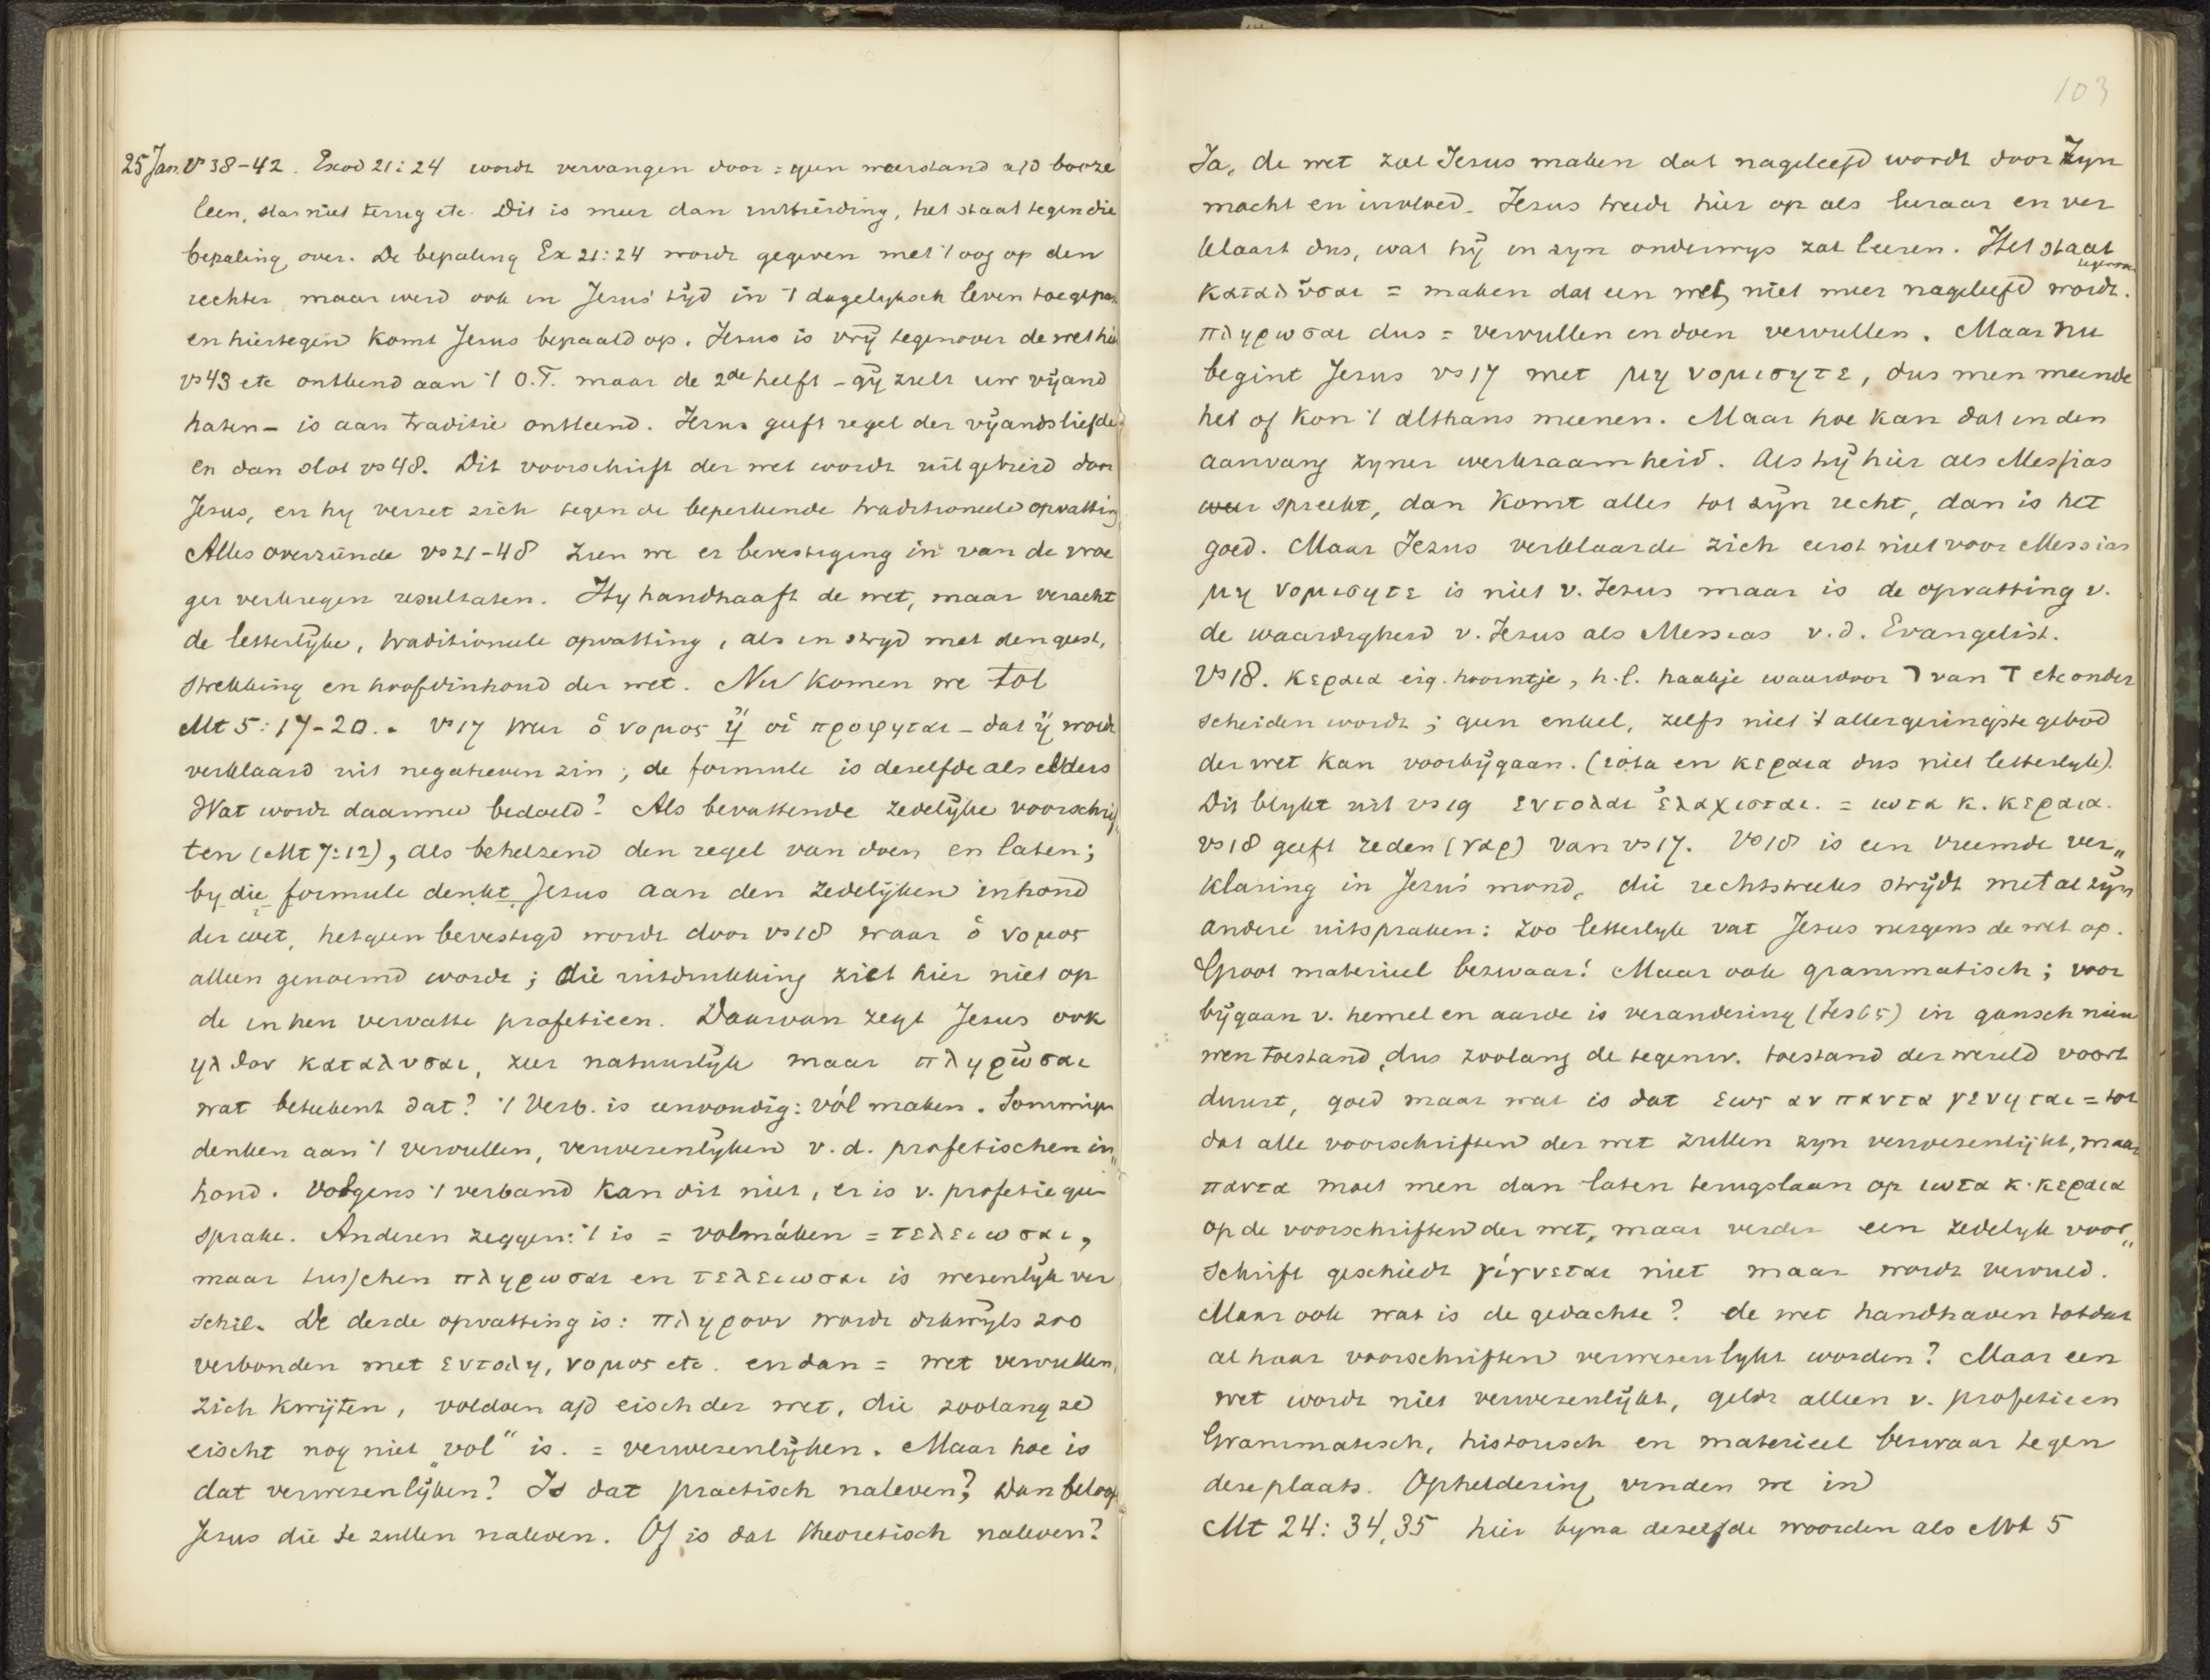 25 Jan. vs 38-42. Exod 21:24 wordt vervangen door = geen weerstand a/d booze
leen, sla niet terug etc. Dit is meer dan uitbreiding, het staat tegen die
bepaling over. De bepaling Ex 21:24 wordt gegeven met 't oog op den
rechter maar werd ook in Jezus' tijd in 't dagelyksch leven toegepas
en hiertegen komt Jezus bepaald op. Jezus is vrij tegenover de wet hie
vs 43 etc ontleend aan 't O.T. maar de 2de helft - gij zult uw vijand
haten - is aan traditie ontleend. Jezus geeft regel der vijandsliefde
en dan slot vs 48. Dit voorschrift der wet wordt uitgebreid door
Jezus, en hy verzet zich tegen de beperkende traditioneele opvatting
Alles overziende vs 21-48 zien we er bevestiging in van de vroe
ger verkregen resultaten. Hy handhaaft de wet, maar veracht
de letterlijke, traditioneele opvatting, als in stryd met den geest,
strekking en hoofdinhoud der wet. Nu komen we tot
Mt 5:17-20. vs 17 weer ὁ νομος ἤ οἱ προφηται - dat ἤ wordt
verklaard uit negatieven zin; de formule is dezelfde als elders
Wat wordt daarmee bedoeld? Als bevattende zedelijke voorschrif
ten (Mt 7:12), als behelzend den regel van doen en laten;
by die formule denkt Jezus aan den zedelijken inhoud
der wet, hetgeen bevestigd wordt door vs 18 waar ὁ νομος
alleen genoemd wordt; die uitdrukking ziet hier niet op
de in hen vervatte profetieen. Daarvan zegt Jezus ook
ηλθον καταλυσαι, zeer natuurlijk maar πληρῶσαι
wat beteekent dat? 't Verb. is eenvoudig: vól maken. Sommigen
denken aan 't vervullen, verwezenlyken v.d. profetischen in„
houd. Volgens 't verband kan dit niet, er is v. profetie geen
sprake. Anderen zeggen: 't is = volmáken = τελειωσαι,
maar tusschen πληρωσαι en τελειωσαι is wezenlijk ver
schil. De derde opvatting is: πληρουν wordt dikwijls zoo
verbonden met εντολη, νομος etc. en dan = wet vervullen,
zich kwijten, voldoen a/d eisch der wet, die zoolang ze
eischt nog niet „vol" is. = verwezenlijken. Maar hoe is
dat verwezenlijken? Is dat practisch naleven? Dan beloof
Jezus die te zullen naleven. Of is dat theoretisch naleven?
103
Ja, de wet zal Jezus maken dat nageleefd wordt door Zyn
macht en invloed. Jezus treedt hier op als leeraar en ver
klaart dus, wat hij in zyn onderwys zal leeren. Het staat
tegenover
καταλῦσαι = maken dat een wet niet meer nageleefd wordt.
πληρωσαι dus = vervullen en doen vervullen. Maar nu
begint Jezus vs 17 met μη νομισητε, dus men meende
het of kon 't althans meenen. Maar hoe kan dat in den
aanvang zyner werkzaamheid. Als hij hier als Messias
weer spreekt, dan komt alles tot zijn recht, dan is het
goed. Maar Jezus verklaarde zich eerst niet voor Messias
μη νομισητε is niet v. Jezus maar is de opvatting v.
de waardigheid v. Jezus als Messias v.d. Evangelist.
Vs 18. κεραια eig. hoorntje, h.l. haakje waardoor ד van ר etc onder
scheiden wordt; geen enkel, zelfs niet 't allergeringste gebod
der wet kan voorbijgaan. (iota en κεραια dus niet letterlyk).
Dit blykt uit vs 19 εντολαι ἐλαχισται. = ιωτα κ. κεραια.
vs 18 geeft reden (γαρ) van vs 17. Vs 18 is een vreemde ver„
klaring in Jezus' mond, die rechtstreeks strijdt met al zijn
andere uitspraken: zoo letterlyk vat Jezus nergens de wet op.
Groot materieel bezwaar! Maar ook grammatisch; voor
bijgaan v. hemel en aarde is verandering (Jes 65) in gansch nieu
wen toestand, dus zoolang de tegenw. toestand der wereld voort
duurt, goed maar wat is dat εως αν παντα γενηται = tot
dat alle voorschriften der wet zullen zyn verwezenlijkt, maar
παντα moet men dan laten terugslaan op ιωτα κ. κεραια
op de voorschriften der wet, maar verder een zedelyk voor„
schrift geschiedt γίγνεται niet maar wordt vervuld.
Maar ook wat is de gedachte? de wet handhaven totdat
al haar voorschriften verwezenlykt worden? Maar een
wet wordt niet verwezenlijkt, geldt alleen v. profetieen
Grammatisch, historisch en materieel bezwaar tegen
deze plaats. Opheldering vinden we in
Mt 24:34,35 hier byna dezelfde woorden als Mt 5